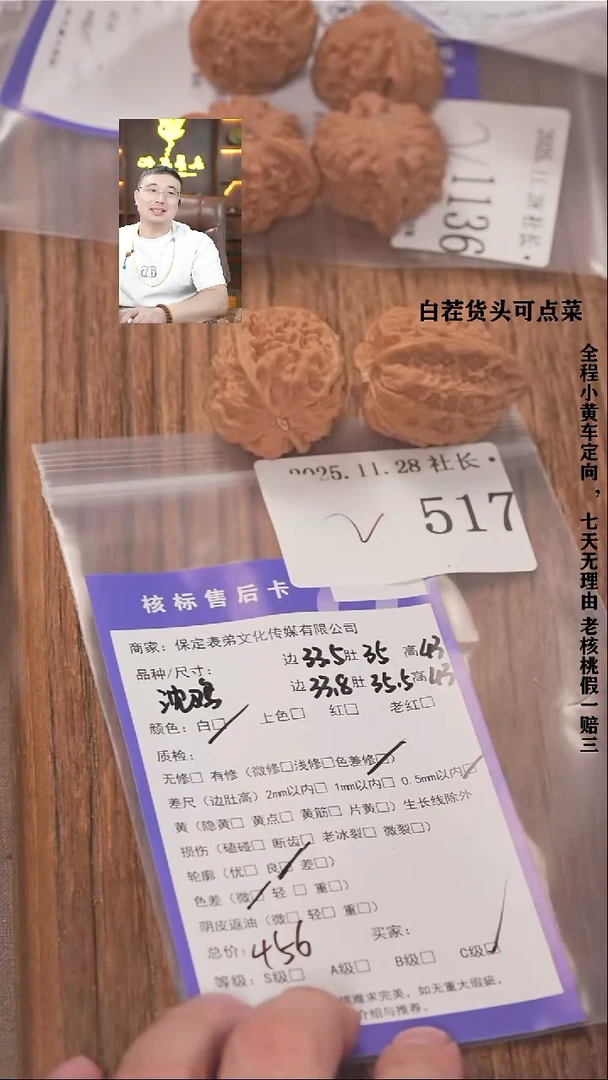 2025.11.28 社长·
V1136
白茬货头可点菜
全程小黄车定向，七天无理由老核桃假一赔三
2025.11.28 社长·
V 517
核标售后卡
商家：保定表弟文化传媒有限公司
品种/尺寸：
边33.5肚35 高43
边33.8肚35.5高43
颜色：白□ 上色□ 红□ 老红□
质检：
无修□ 有修（微修□浅修□色差修□）
差尺（边肚高）2mm以内□ 1mm以内□ 0.5mm以内□
黄（隐黄□ 黄点□ 黄筋□ 片黄□）生长线除外
损伤（磕碰□ 断齿□ 老冰裂□ 微裂□）
轮廓（优□ 良□ 差□）
色差（微□ 轻□ 重□）
阴皮返油（微□ 轻□ 重□）
总价：456 买家：
等级：S级□ A级□ B级□ C级□
难求完美，如无重大瑕疵，
介绍与推荐。